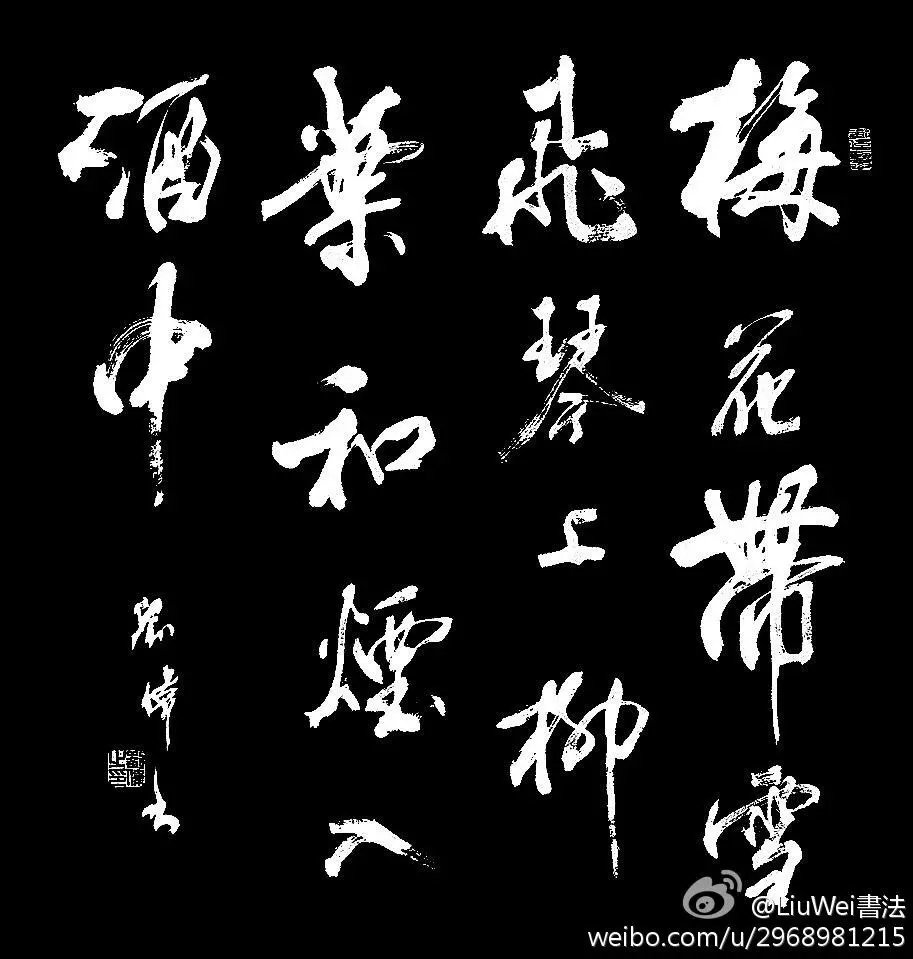 梅花帶雪
飛琴上柳
葉和煙入
酒中
劉偉书
@LiuWei書法
weibo.com/u/2968981215